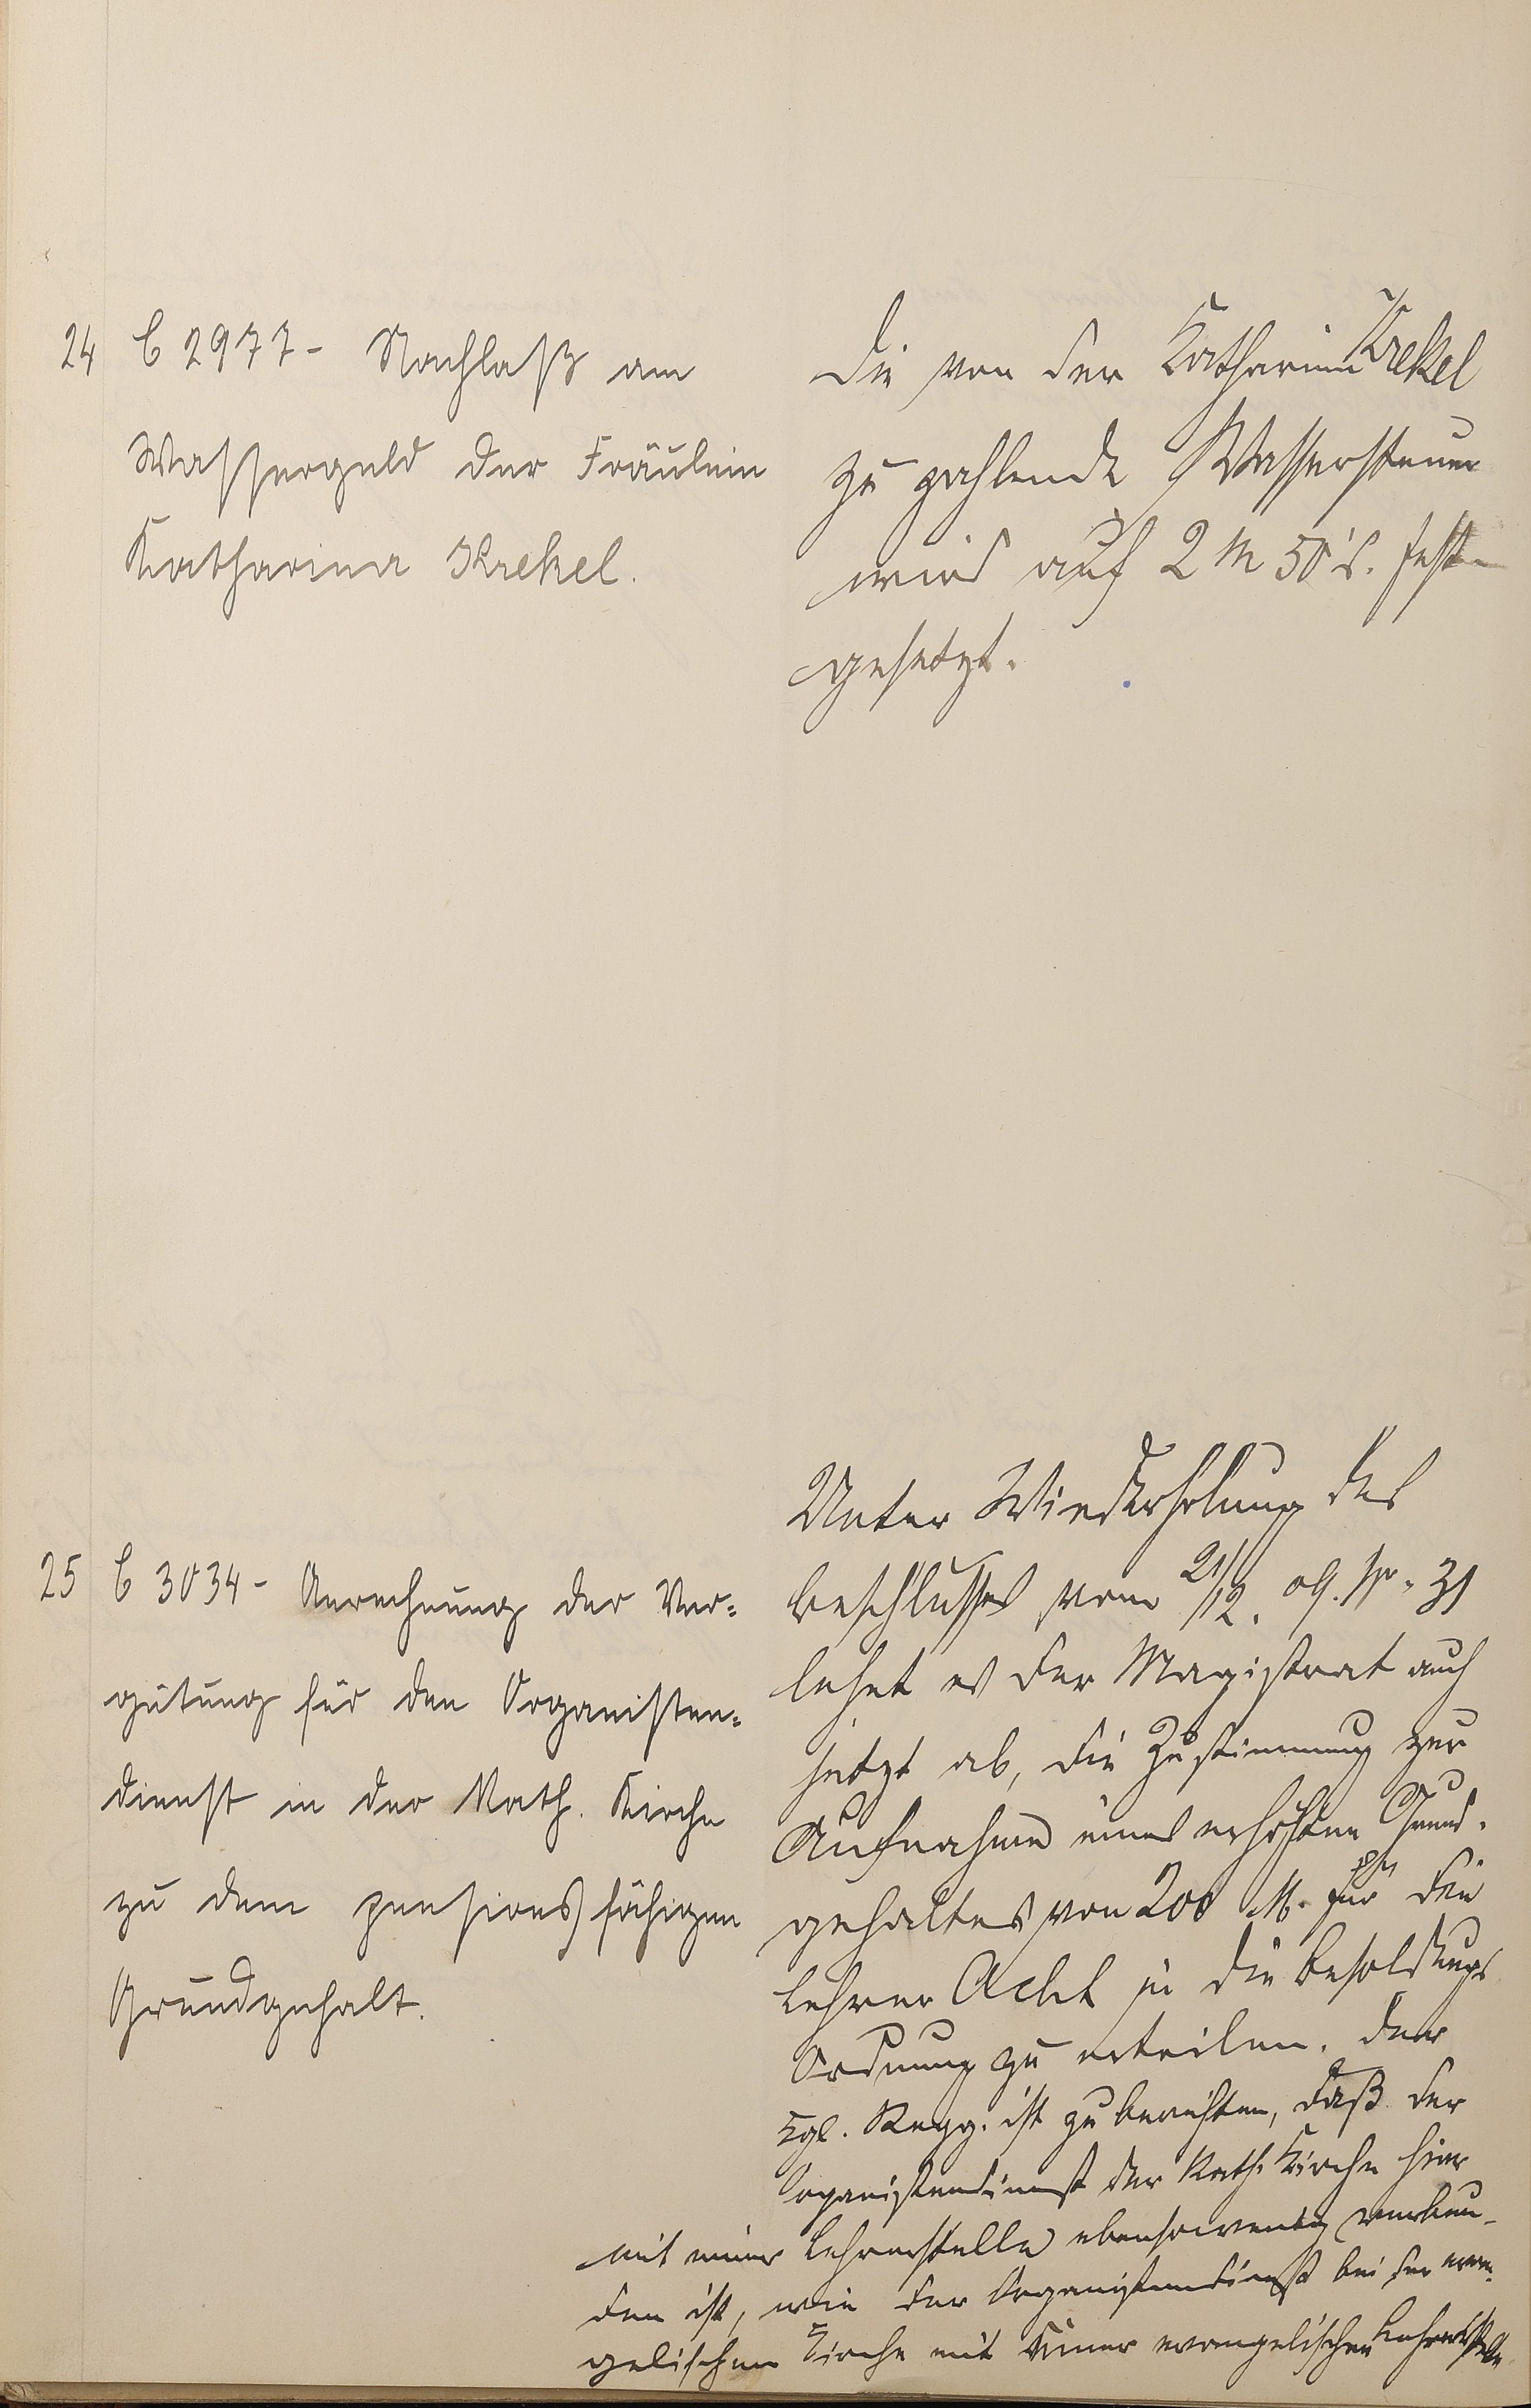 24 C 2977 - Nachlaß am
Wassergeld der Fräulein
Katharina Krekel.
Die von der Katharina Krekel
zu zahlende Wassersteuer
wird auf 2 M 50 d. fest-
gesetzt.
25 C 3034 - Anrechnung der Ver=
gütung für den Organisten=
dienst in der Kath. Kirche
zu dem pensionsfähigen
Grundgehalt.
Unter Wiederholung des
Beschlusses vom 21/12. 09. 31
lehnt es der Magistrat auch
jetzt ab, die Zustimmung zur
Aufnahme eines erhöhten Grund-
gehaltes von 200 M. für die
Lehrer Acht in die Besoldungs
Ordnung zu erteilen. Der
Kgl. Regg. ist zu berichten, daß der
Organistendienst der Kath. Kirche hier
mit einer Lehrerstelle ebensowenig verbun-
den ist, wie der Organistendienst bei der evan-
gelischen Kirche mit einer evangelischen Lehrerstelle